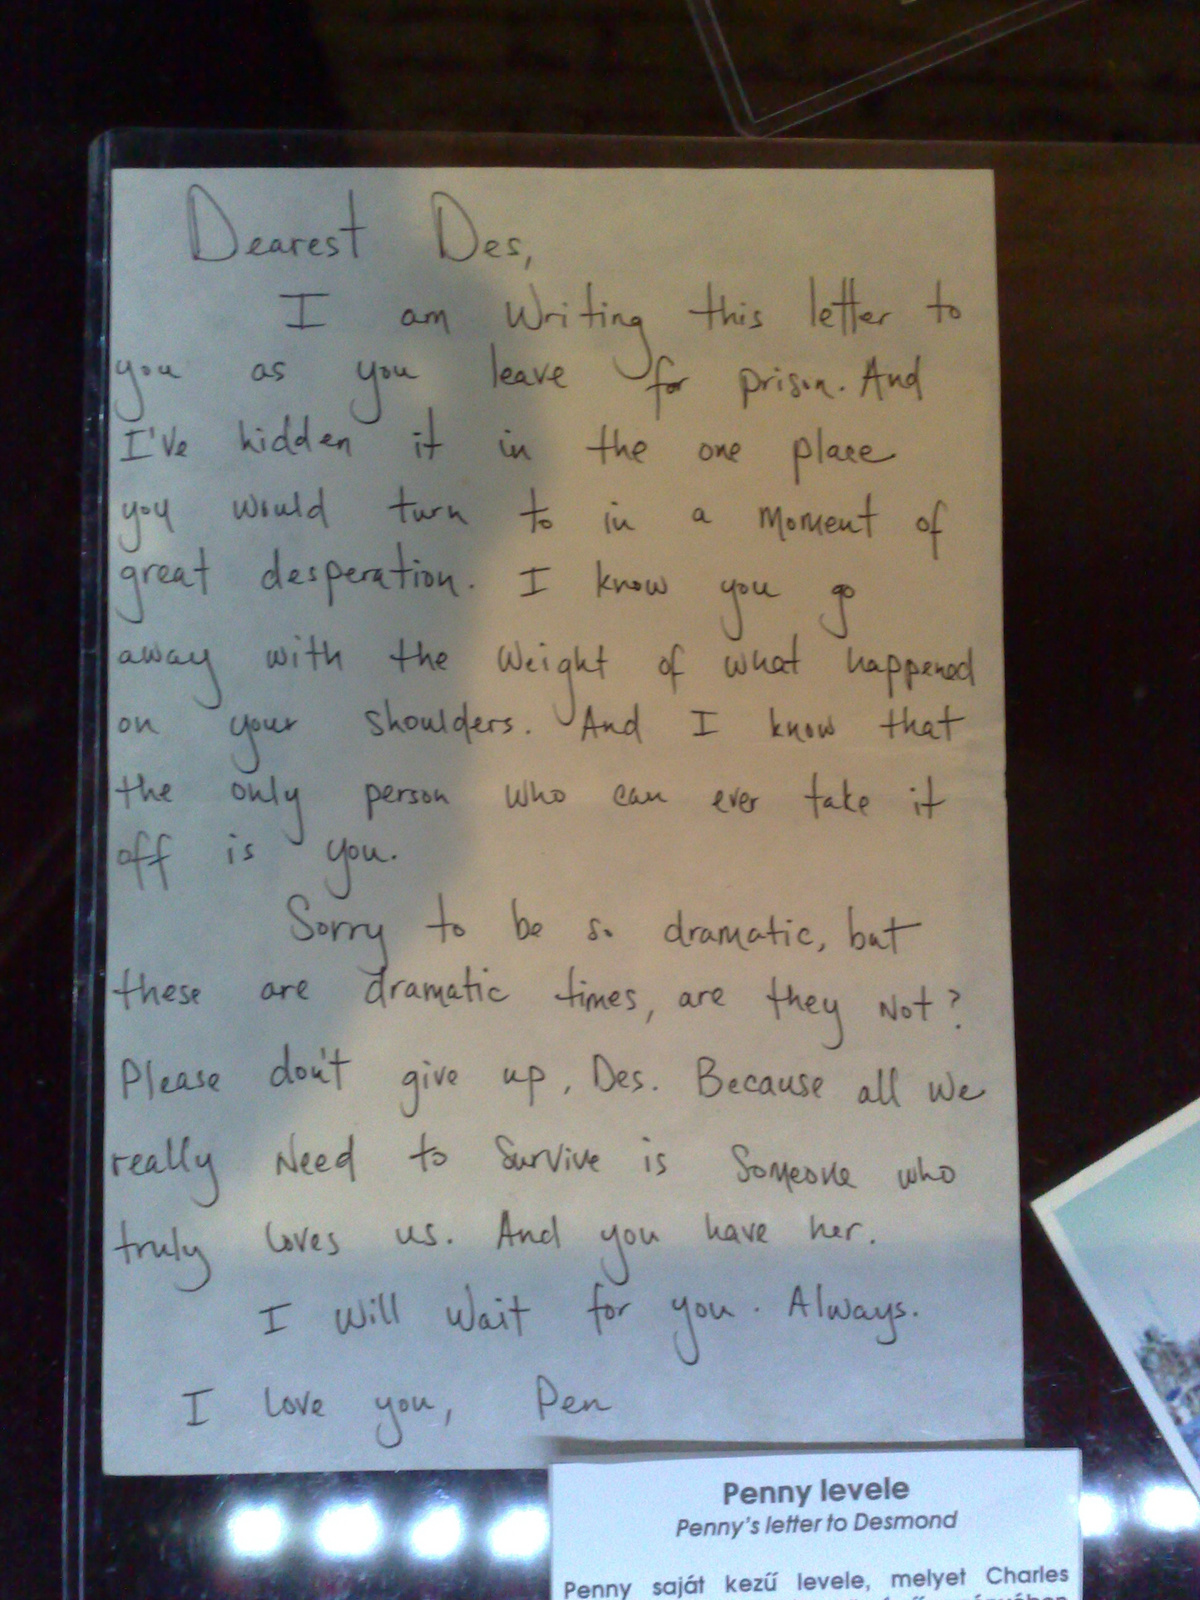 Dearest Des,
I am writing this letter to
you as you leave for prison. And
I've hidden it in the one place
you would turn to in a moment of
great desperation. I know you go
away with the weight of what happened
on your shoulders. And I know that
the only person who can ever take it
off is you.
Sorry to be so dramatic, but
these are dramatic times, are they not?
Please don't give up, Des. Because all we
really need to survive is someone who
truly loves us. And you have her.
I will wait for you. Always.
I love you, Pen
Penny levele
Penny's letter to Desmond
Penny saját kezű levele, melyet Charles